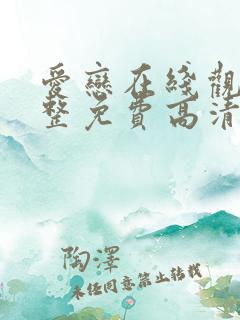 爱戀在綫觀
整免費高清
陶澤
未经同意禁止转载